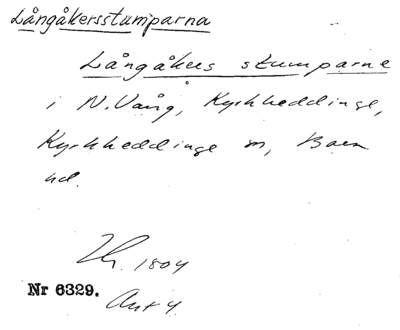 Långåkersstumparna
Långåkers stumparne
i N. Vång, Kyrkheddinge,
Kyrkheddinge sn, Bara
hd.
1804
Nr 6329.
Akt 4.